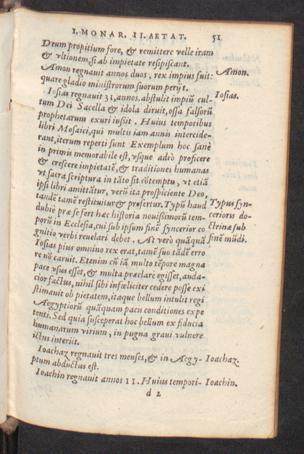 I. MONAR. II. AETAT. 51
Deum propitium fore, & remittere velle iram
& vltionem, si ab impietate resipiscant.
Amon regnauit annos duos, rex impius fuit: Amon.
quare gladio ministrorum suorum perijt.
Iosias regnauit 31, annos. abstulit impiũ cul- Iosias.
tum Dei Sacella & idola diruit, ossa falsorũ
prophetarum exuri iussit. Huius temporibus
libri Mosaici, qui multis iam annis intercide-
rant, iterum reperti sunt Exemplum hoc sanè
in primis memorabile est, vsque adeò proficere
& crescere impietatẽ, & traditiones humanas
vt sacra scriptura in tãto sit cõtemptu, vt etiã
ipsi libri amittãtur, verũ ita prospiciente Deo,
tandẽ tamẽ restituitur & profertur. Typũ haud Typus syn-
dubiè præ se fert hæc historia nouissimorũ tem- cerioris do-
porũ in Ecclesia, cui sub ipsum finẽ syncerior co ctrinæ sub
gnitio verbi reuelari debet. At verò quãquã finẽ mũdi.
Iosias pius omnino rex erat, tamẽ suo tãdẽ erro
re nõ caruit. Etenim cũ iã multo tẽpore magna
pace vsus esset, & multa præclare egisset, anda-
cior factus, nihil sibi infœliciter cedere posse exi-
stimauit ob pietatem, itaque bellum intulit regi
Aegyptiorũ quãquam pacis conditiones expe
tenti. Sed quia susceperat hoc bellum ex fiducia
humanarum virium, in pugna graui vulnere
ictus interiit.
Ioachaz regnauit tres menses, & in Aegy- Ioachaz.
ptum abductus est.
Ioachin regnauit annos 11. Huius tempori- Ioachin.
d 2